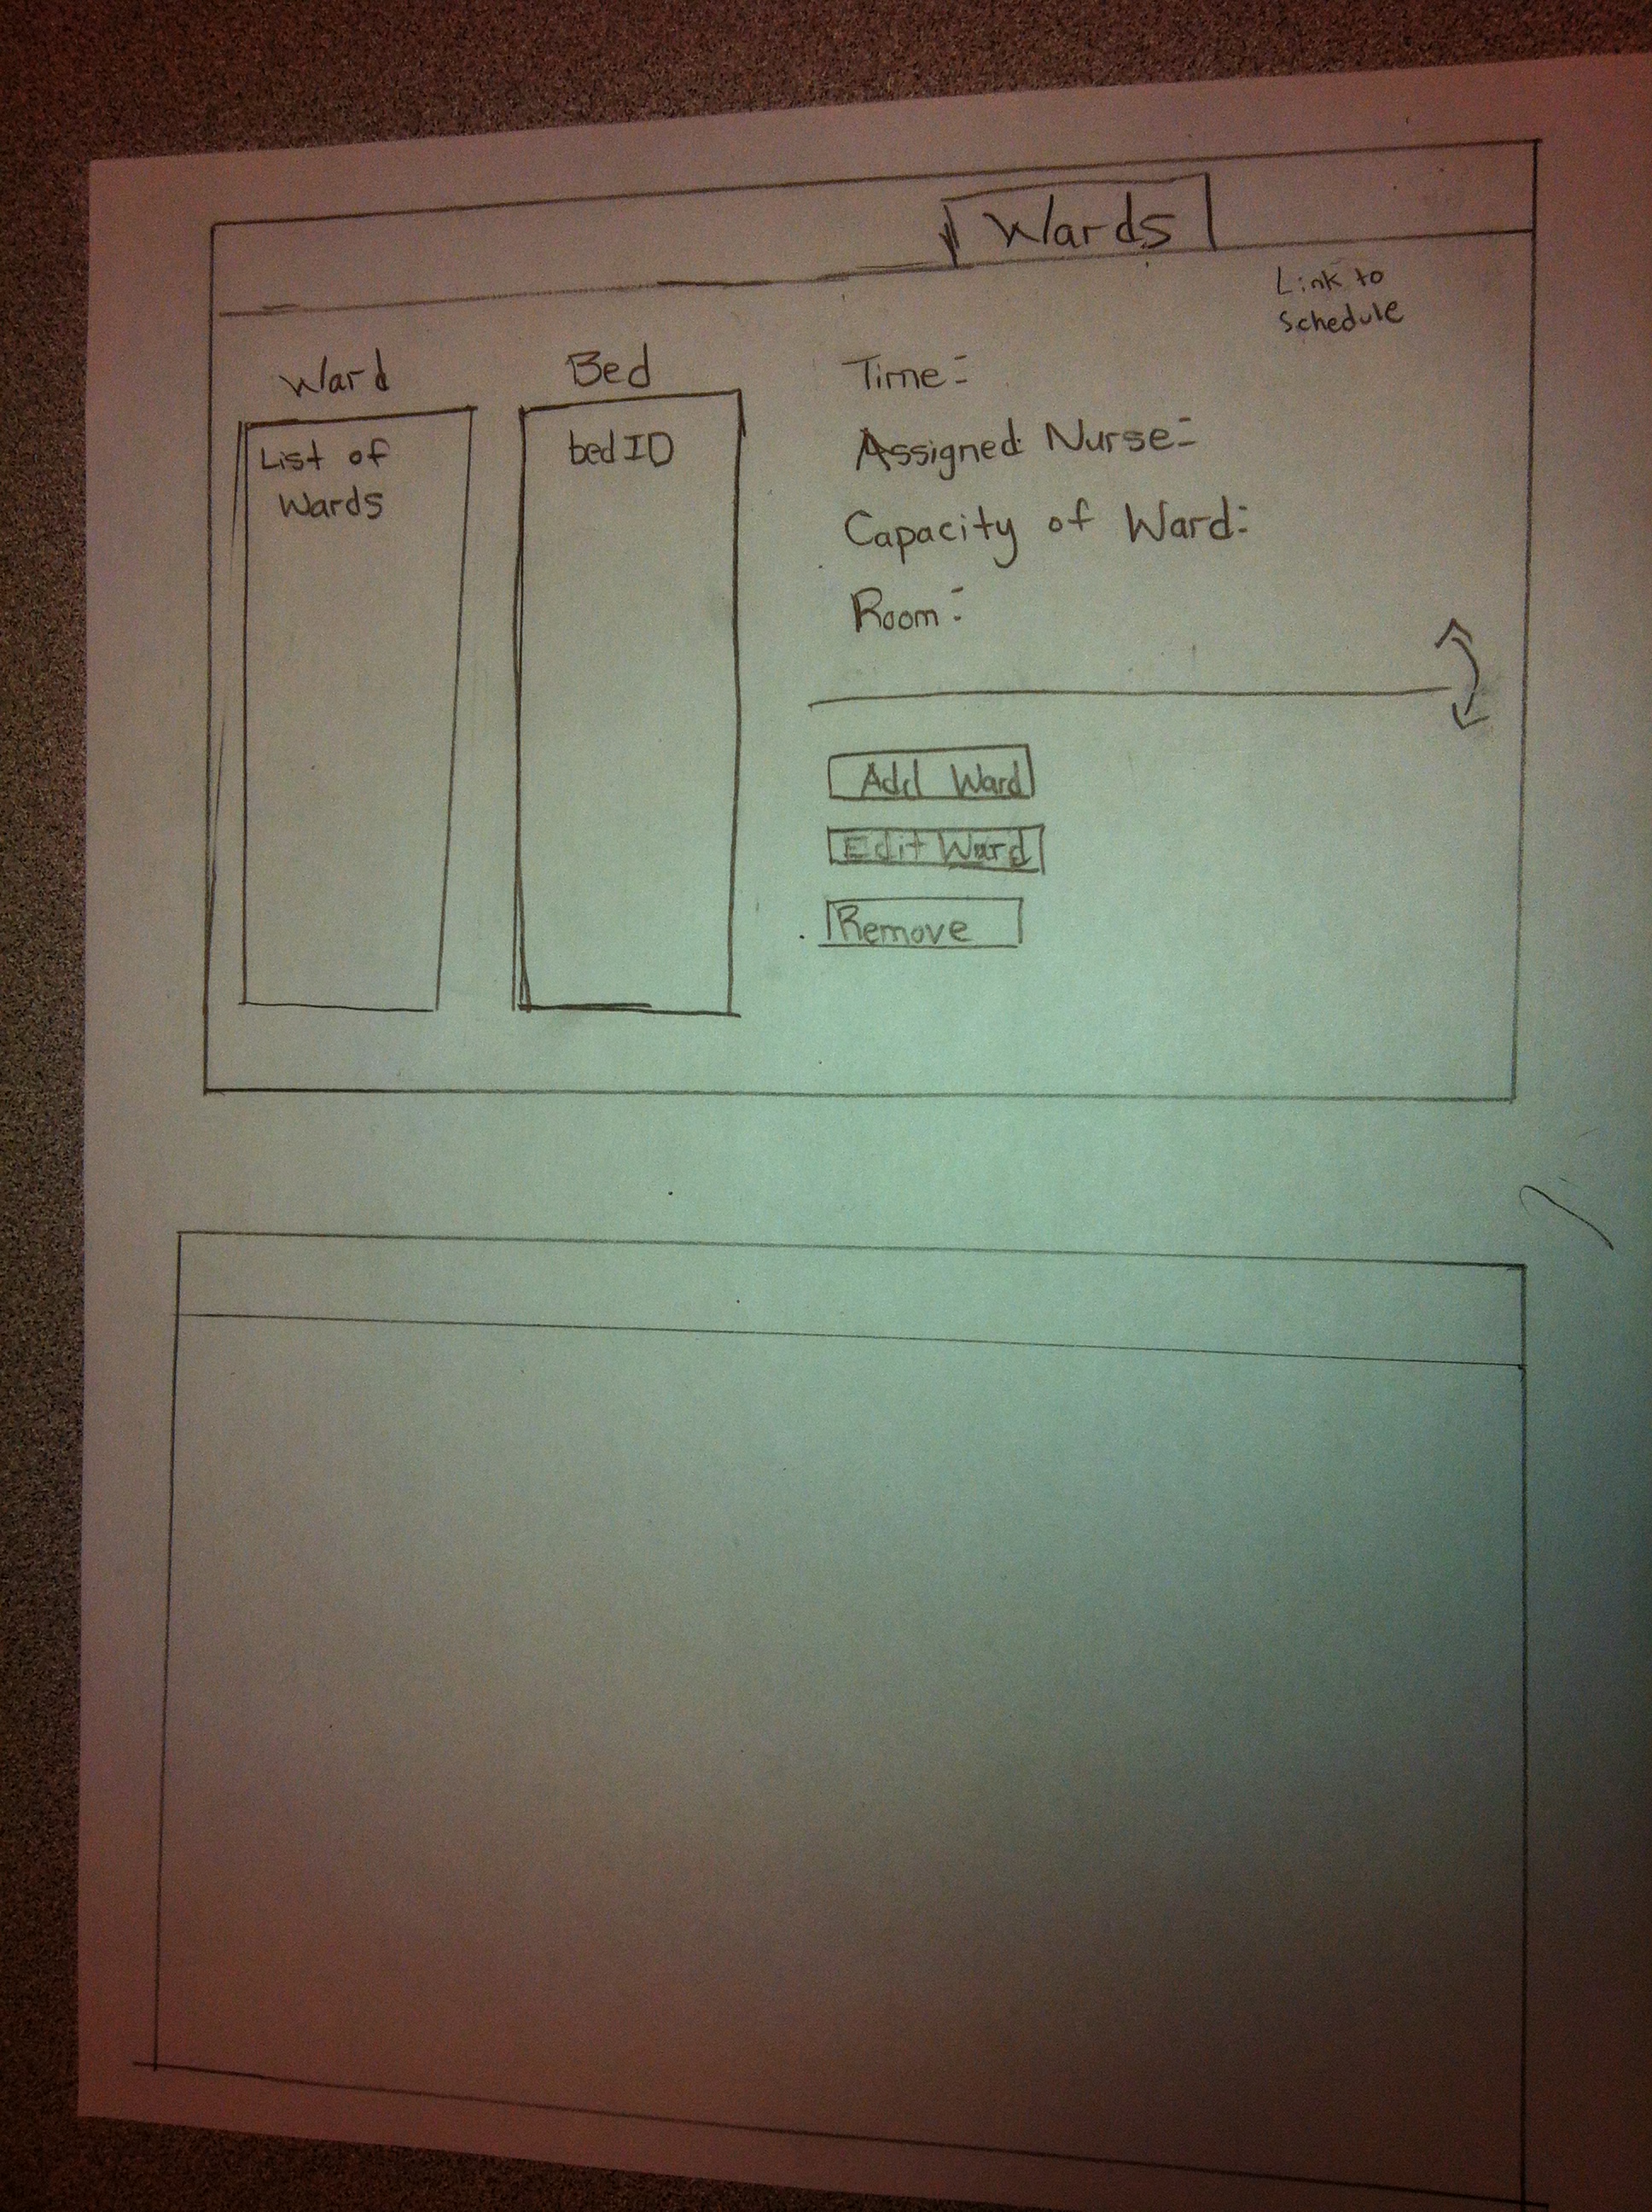 Wards
Link to
Schedule
Ward
Bed
List of
Wards
bedID
Time:
Assigned Nurse:
Capacity of Ward:
Room:
Add Ward
Edit Ward
Remove